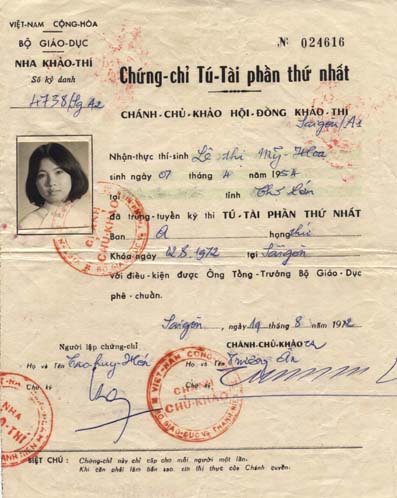 VIỆT-NAM CỘNG-HÒA
BỘ GIÁO-DỤC
NHA KHẢO-THÍ
Số ký danh
4738/Sg A2
№ 024616
Chứng-chỉ Tú-Tài phần thứ nhất
CHÁNH-CHỦ-KHẢO HỘI-ĐỒNG KHẢO-THÍ
Saigon/A1
Nhận-thực thí-sinh Lê thị Mỹ-Hoa
sinh ngày 07 tháng 4 năm 1954
tại tỉnh
đã trúng-tuyển kỳ thi TÚ-TÀI PHẦN THỨ NHẤT
Ban A hạng thứ
Khóa ngày 22.8.1972 tại Saigon
với điều-kiện được Ông Tổng-Trưởng Bộ Giáo-Dục
phê-chuẩn.
Saigon, ngày 19 tháng 8 năm 1972
Người lập chứng-chỉ
CHÁNH-CHỦ-KHẢO
Họ và Tên Cao huy-
Họ và Tên Trương Ân
Chữ ký
Chữ ký
CHÁNH CHỦ-KHẢO
VIỆT-NAM CỘNG-
CHÁNH CHỦ-KHẢO
NHA KHẢO-THÍ
BIỆT CHÚ : Chứng-chỉ này chỉ cấp cho mỗi người một lần.
Khi cần phải làm bản sao, xin thị thực của Chánh quyền.